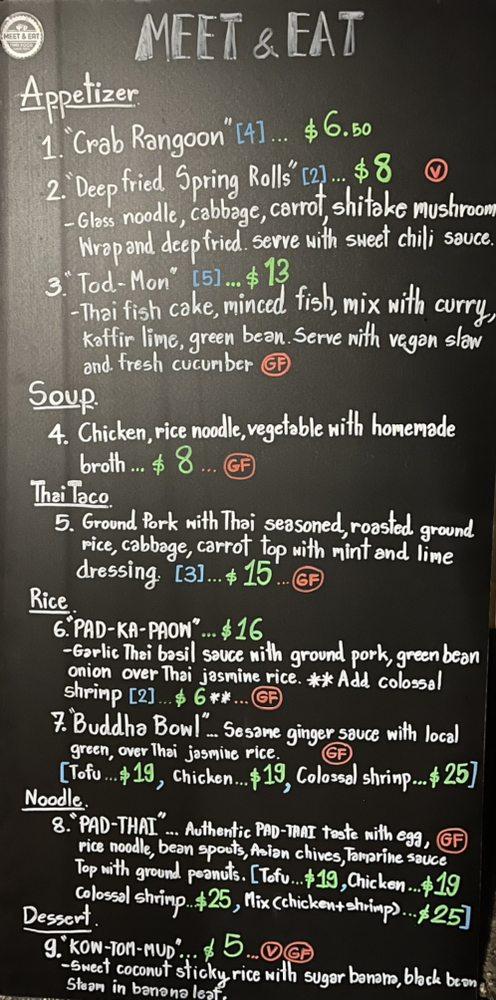 MEET & EAT
MEET & EAT
Appetizer
1. "Crab Rangoon" [4] ... $6.50
2. "Deep fried Spring Rolls" [2] ... $8 V
- Glass noodle, cabbage, carrot, shitake mushroom
Wrap and deep fried. serve with sweet chili sauce.
3. "Tod-Mon" [5] ... $13
- Thai fish cake, minced fish, mix with curry,
Kaffir lime, green bean. Serve with vegan slaw
and fresh cucumber GF
Soup
4. Chicken, rice noodle, vegetable with homemade
broth ... $8 ... GF
Thai Taco
5. Ground Pork with Thai seasoned, roasted ground
rice, cabbage, carrot top with mint and lime
dressing. [3] ... $15 ... GF
Rice
6. "PAD-KA-PAOW" ... $16
- Garlic Thai basil sauce with ground pork, green bean
onion over Thai jasmine rice. ** Add colossal
shrimp [2] ... $6 ** ... GF
7. "Buddha Bowl" ... Sesame ginger sauce with local
green, over Thai jasmine rice. GF
[Tofu ... $19, Chicken ... $19, Colossal shrimp ... $25]
Noodle
8. "PAD-THAI" ... Authentic PAD-THAI taste with egg, GF
rice noodle, bean spouts, Asian chives, Tamarine sauce
Top with ground peanuts. [Tofu ... $19, Chicken ... $19
Colossal shrimp ... $25, Mix (chicken+shrimp) ... $25]
Dessert
9. "KOW-TOM-MUD" ... $5 ... V GF
- Sweet coconut sticky rice with sugar banana, black bean
Steam in banana leaf.